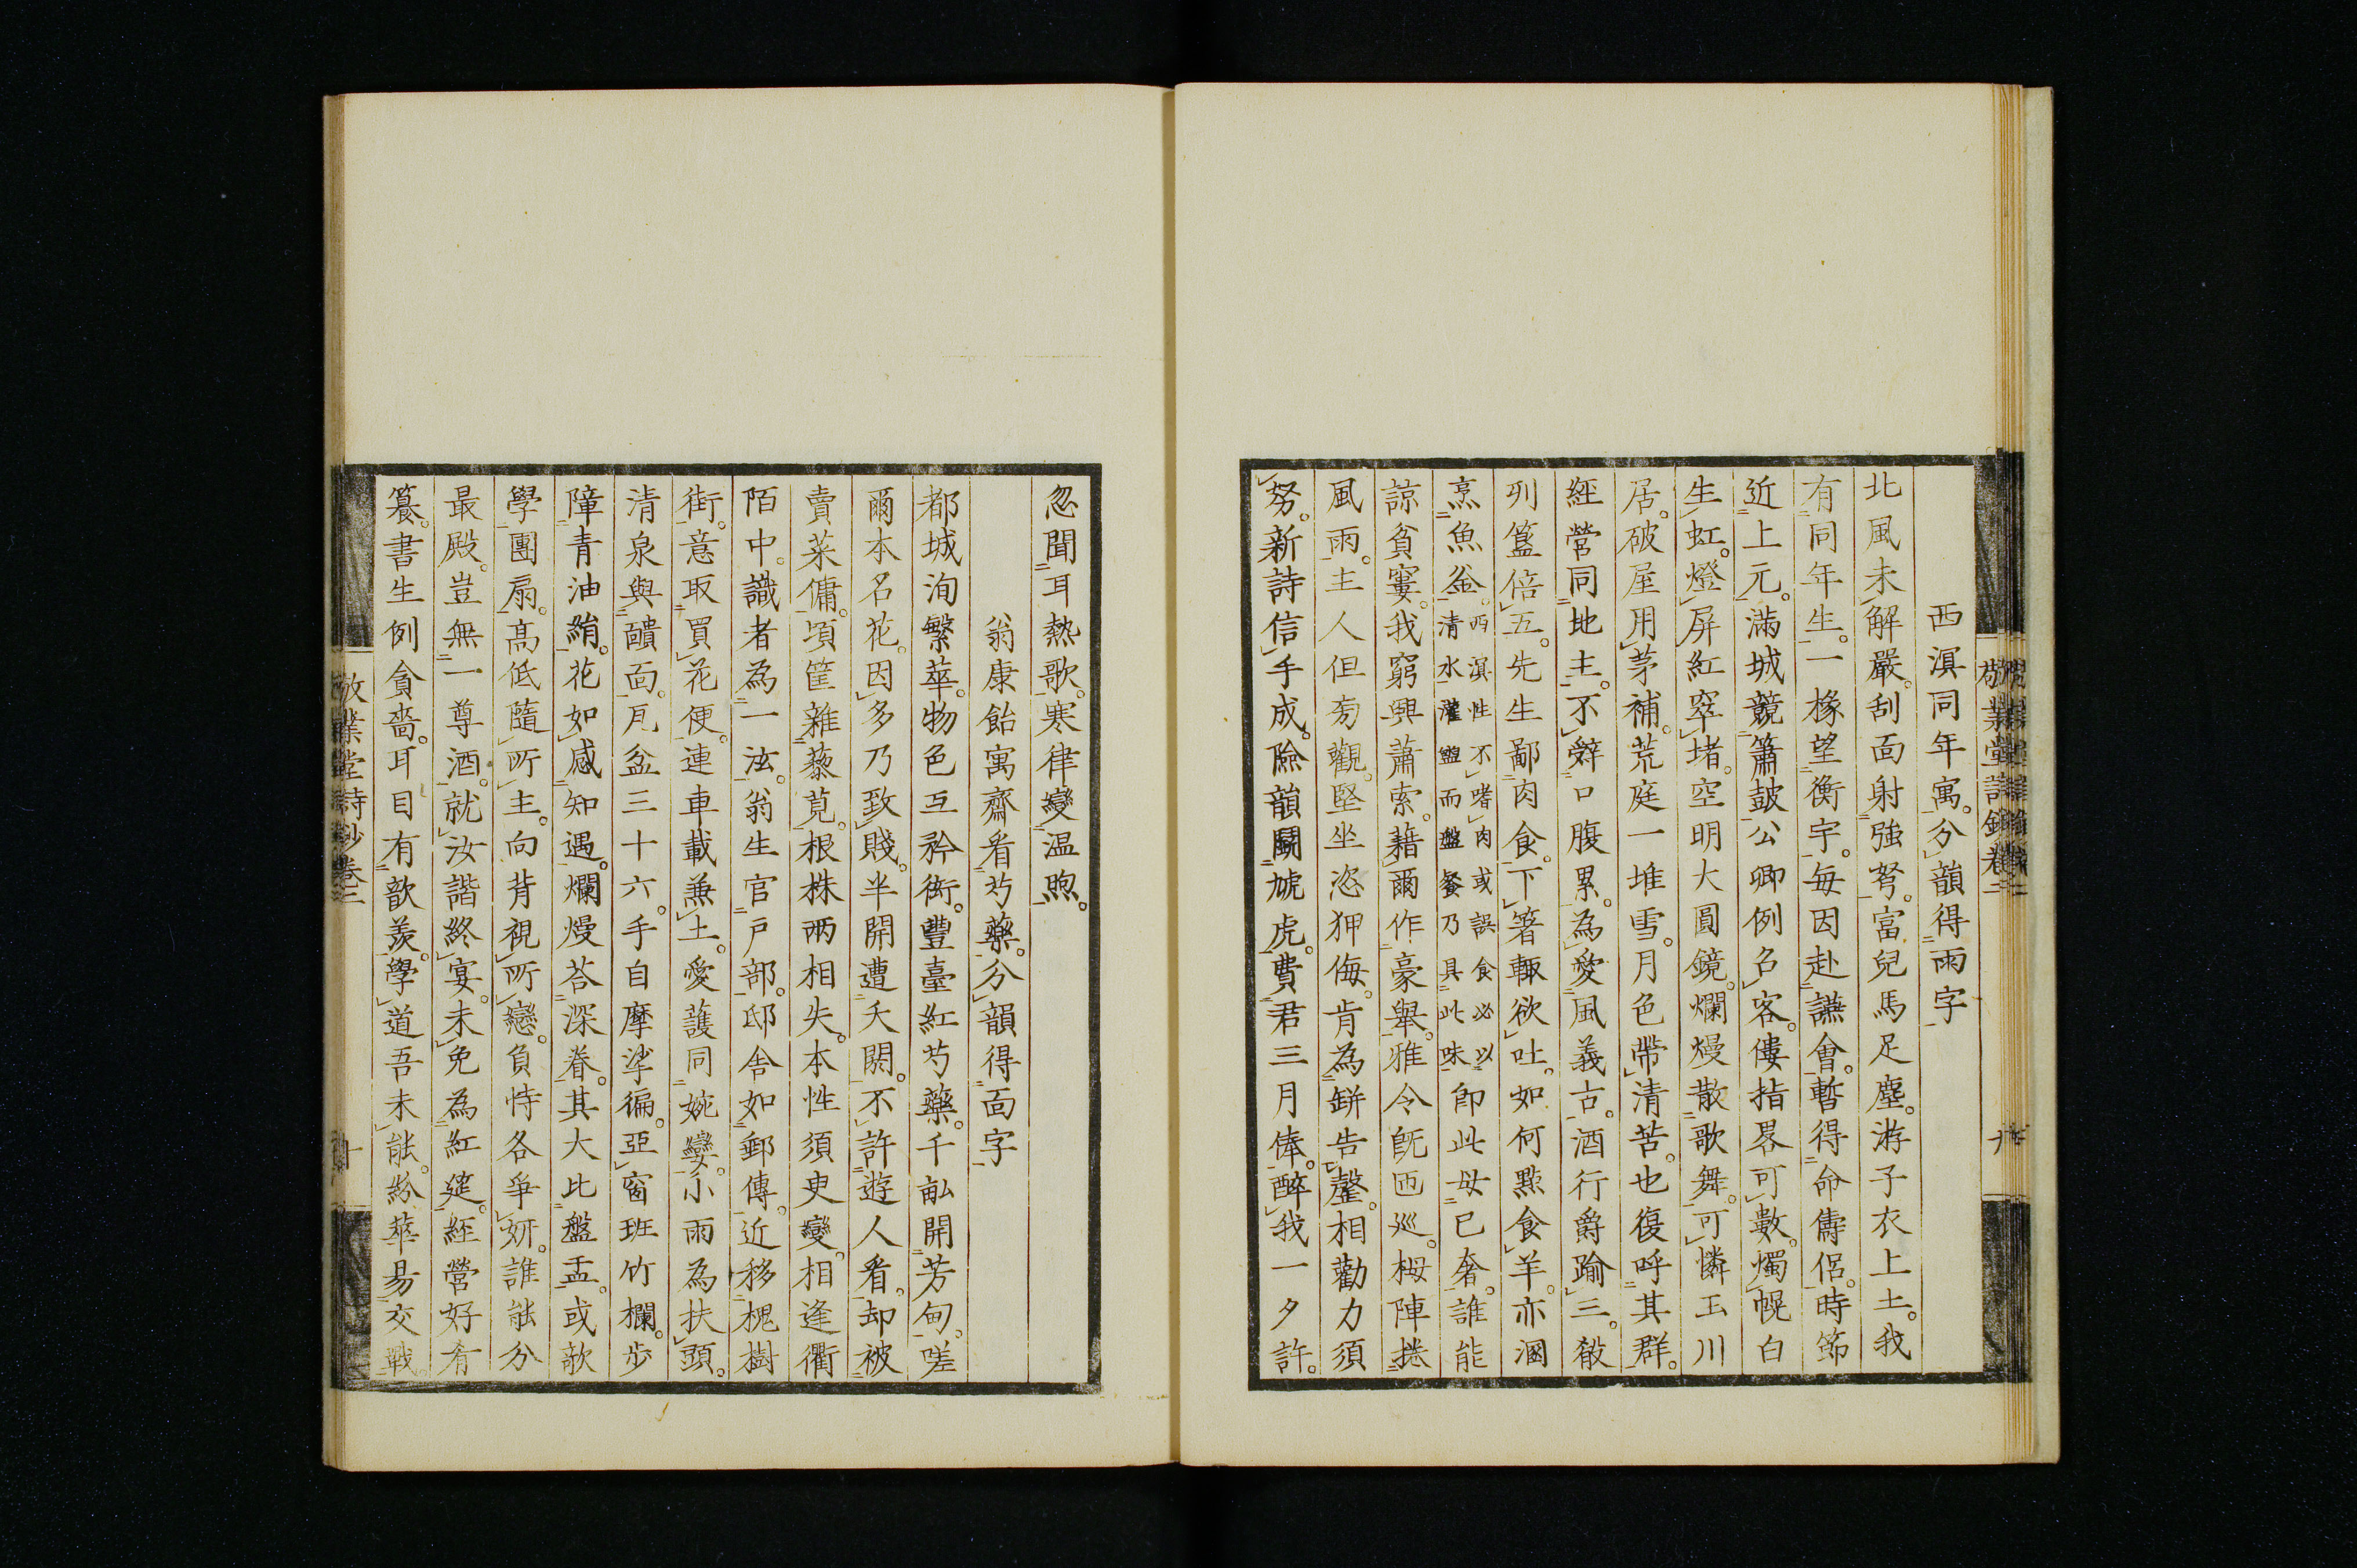 西溟同年寓。分韻得雨字
北風未解嚴。刮面射強弩。富兒馬足塵。游子衣上土。我
有同年生。一椽望衡宇。每因赴讌會。暫得命儔侶。時節
近上元。滿城競簫鼓。公卿例召客。僂指畧可數。燭幌白
生虹。燈屏紅窣堵。空明大圓鏡。爛熳散歌舞。可憐玉川
居。破屋用茅補。荒庭一堆雪。月色帶清苦。也復呼其群。
經營同地主。不辭口腹累。為愛風義古。酒行爵踰三。殽
列簋倍五。先生鄙肉食。下箸輒欲吐。如何點食羊。亦溷
烹魚釜。西溟性不嗜肉或誤食必以清水灌盥而盤餐乃具此味即此毋已奢。誰能
諒貧窶。我窮興蕭索。藉爾作豪舉。雅令既匝巡。拇陣捲
風雨。主人但旁觀。堅坐恣狎侮。肯為缾告罄。相勸力須
努。新詩信手成。險韻鬭虓虎。費君三月俸。醉我一夕許。
敬業堂詩鈔卷二
九
忽聞耳熱歌。寒律變温煦。
翁康飴寓齋看芍藥。分韻得面字
都城洵繁華。物色互矜衒。豐臺紅芍藥。千畝開芳甸。嗟
爾本名花。因多乃致賤。半開遭夭閼。不許遊人看。却被
賣菜傭。頃筐雜藜莧。根株兩相失。本性須臾變。相逢衢
陌中。識者為一泫。翁生官戶部。邸舍如郵傳。近移槐樹
街。意取買花便。連車載兼土。愛護同婉孌。小雨為扶頭。
清泉與靧面。瓦盆三十六。手自摩挲徧。亞窗班竹欄。步
障青油絹。花如感知遇。爛熳荅深眷。其大比盤盂。或歆
學團扇。高低隨所主。向背視所戀。負恃各爭妍。誰能分
最殿。豈無一尊酒。就汝諧終宴。未免為紅筵。經營好肴
籑。書生例貪嗇。耳目有歆羨。學道吾未能。紛華易交戰。
敬業堂詩鈔卷二
十